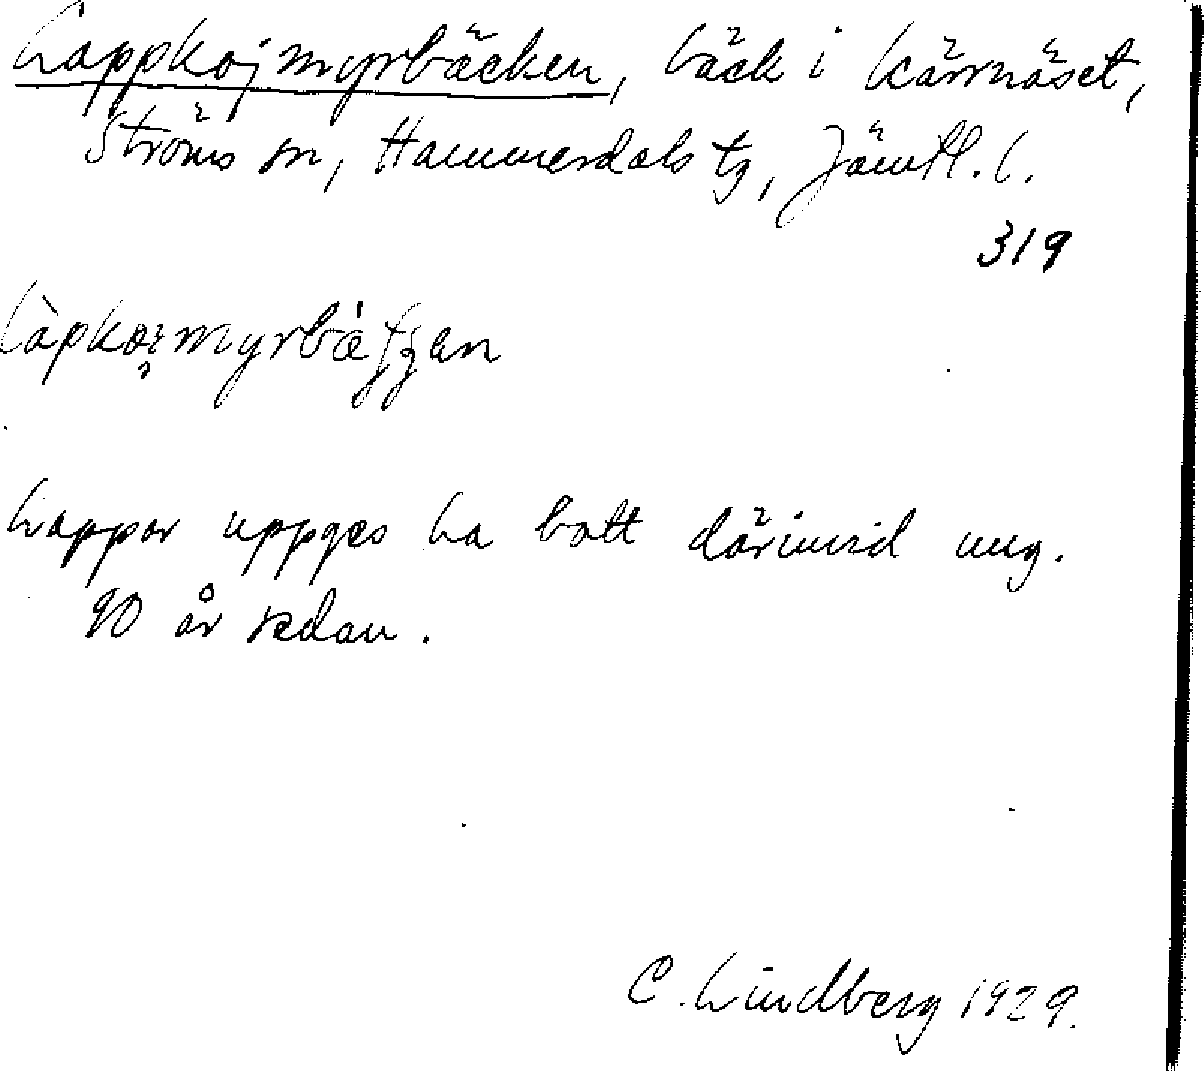 Lappkojmyrbäcken, bäck i Kärrnäset,
Ströms sn, Hammerdals tg, Jämtl. l.
319
Lappar uppges ha bott därinvid ung.
90 år sedan.
C. Lindberg 1929.